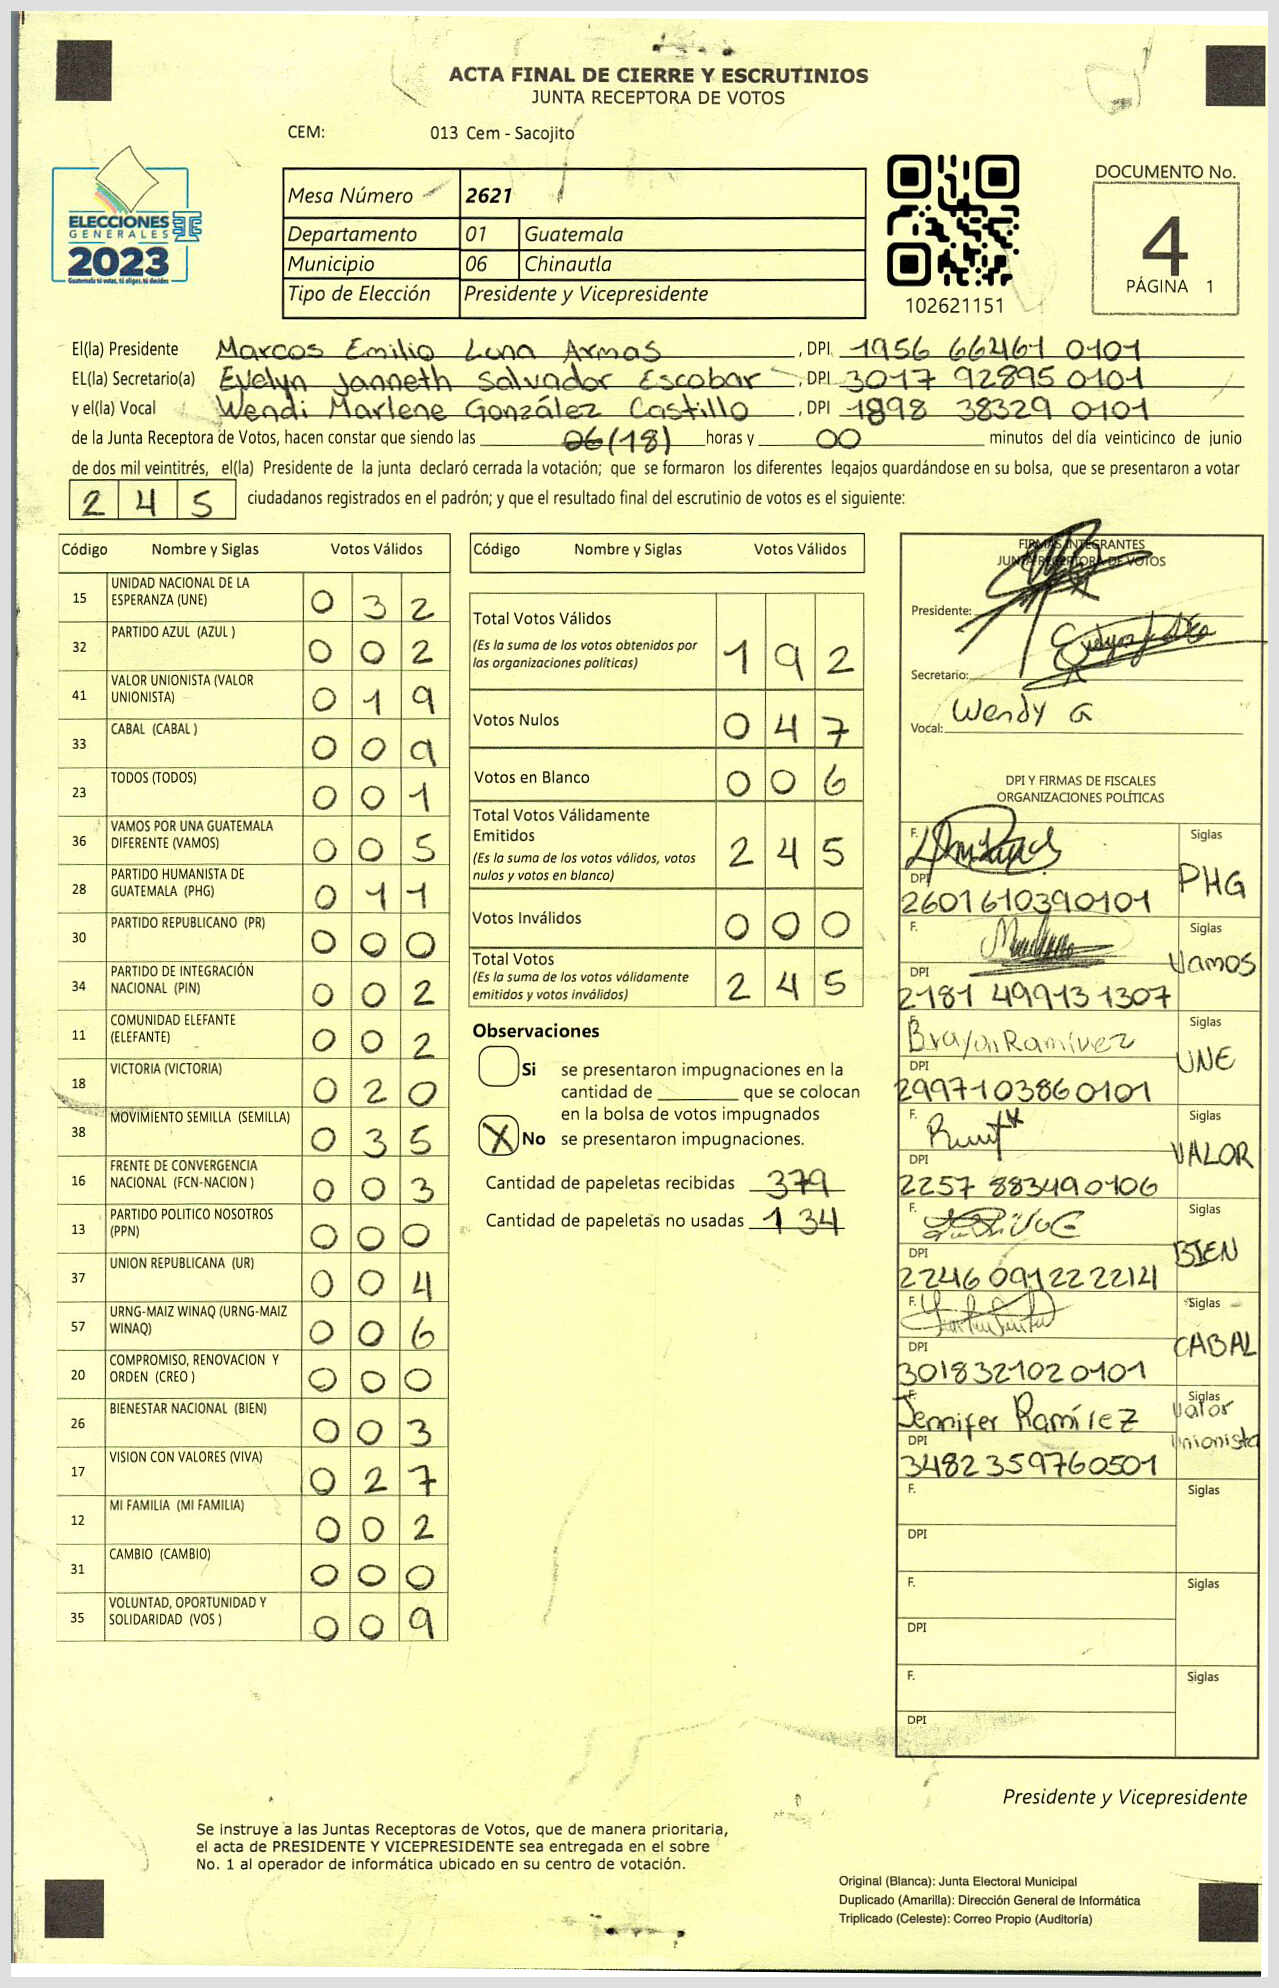 ACTA FINAL DE CIERRE Y ESCRUTINIOS
JUNTA RECEPTORA DE VOTOS
CEM: 013 Cem - Sacojito
ELECCIONES
GENERALES
2023
Guatemala tú votas, tú eliges, tú decides
Mesa Número 2621
Departamento 01 Guatemala
Municipio 06 Chinautla
Tipo de Elección Presidente y Vicepresidente
102621151
DOCUMENTO No.
4
PÁGINA 1
El(la) Presidente Marcos Emilio Luna Armas, DPI 1956 66461 0101
EL(la) Secretario(a) Evelyn Janneth Salvador Escobar, DPI 3017 92895 0101
y el(la) Vocal Wendi Marlene González Castillo, DPI 1898 38329 0101
de la Junta Receptora de Votos, hacen constar que siendo las 06 (18) horas y 00 minutos del día veinticinco de junio
de dos mil veintitrés, el(la) Presidente de la junta declaró cerrada la votación; que se formaron los diferentes legajos quardándose en su bolsa, que se presentaron a votar
245 ciudadanos registrados en el padrón; y que el resultado final del escrutinio de votos es el siguiente:
Código Nombre y Siglas Votos Válidos
15 UNIDAD NACIONAL DE LA ESPERANZA (UNE) 032
32 PARTIDO AZUL (AZUL ) 002
41 VALOR UNIONISTA (VALOR UNIONISTA) 019
33 CABAL (CABAL ) 009
23 TODOS (TODOS) 001
36 VAMOS POR UNA GUATEMALA DIFERENTE (VAMOS) 005
28 PARTIDO HUMANISTA DE GUATEMALA (PHG) 011
30 PARTIDO REPUBLICANO (PR) 000
34 PARTIDO DE INTEGRACIÓN NACIONAL (PIN) 002
11 COMUNIDAD ELEFANTE (ELEFANTE) 002
18 VICTORIA (VICTORIA) 020
38 MOVIMIENTO SEMILLA (SEMILLA) 035
16 FRENTE DE CONVERGENCIA NACIONAL (FCN-NACION ) 003
13 PARTIDO POLITICO NOSOTROS (PPN) 000
37 UNION REPUBLICANA (UR) 004
57 URNG-MAIZ WINAQ (URNG-MAIZ WINAQ) 006
20 COMPROMISO, RENOVACION Y ORDEN (CREO ) 000
26 BIENESTAR NACIONAL (BIEN) 003
17 VISION CON VALORES (VIVA) 027
12 MI FAMILIA (MI FAMILIA) 002
31 CAMBIO (CAMBIO) 000
35 VOLUNTAD, OPORTUNIDAD Y SOLIDARIDAD (VOS ) 009
Código Nombre y Siglas Votos Válidos
Total Votos Válidos
(Es la suma de los votos obtenidos por
las organizaciones políticas) 192
Votos Nulos 047
Votos en Blanco 006
Total Votos Válidamente
Emitidos
(Es la suma de los votos válidos, votos
nulos y votos en blanco) 245
Votos Inválidos 000
Total Votos
(Es la suma de los votos válidamente
emitidos y votos inválidos) 245
Observaciones
Si se presentaron impugnaciones en la
cantidad de ________ que se colocan
en la bolsa de votos impugnados
X No se presentaron impugnaciones.
Cantidad de papeletas recibidas 379
Cantidad de papeletas no usadas 134
FIRMAS INTEGRANTES
JUNTA RECEPTORA DE VOTOS
Presidente:
Secretario:
Vocal: Wendy G
DPI Y FIRMAS DE FISCALES
ORGANIZACIONES POLÍTICAS
F. Siglas
PHG
DPI
2601610390101
F. Siglas
Vamos
DPI
2181 499131307
F. Brayan Ramívez Siglas
UNE
DPI
2997103860101
F. Siglas
VALOR
DPI
2257 883490106
F. Siglas
BIEN
DPI
2246 091222214
F. Siglas
CABAL
DPI
3018321020101
F. Jennifer Ramírez Siglas
Valor
Unionista
DPI
3482359760501
F. Siglas
DPI
F. Siglas
DPI
F. Siglas
DPI
Presidente y Vicepresidente
Se instruye a las Juntas Receptoras de Votos, que de manera prioritaria,
el acta de PRESIDENTE Y VICEPRESIDENTE sea entregada en el sobre
No. 1 al operador de informática ubicado en su centro de votación.
Original (Blanca): Junta Electoral Municipal
Duplicado (Amarilla): Dirección General de Informática
Triplicado (Celeste): Correo Propio (Auditoría)